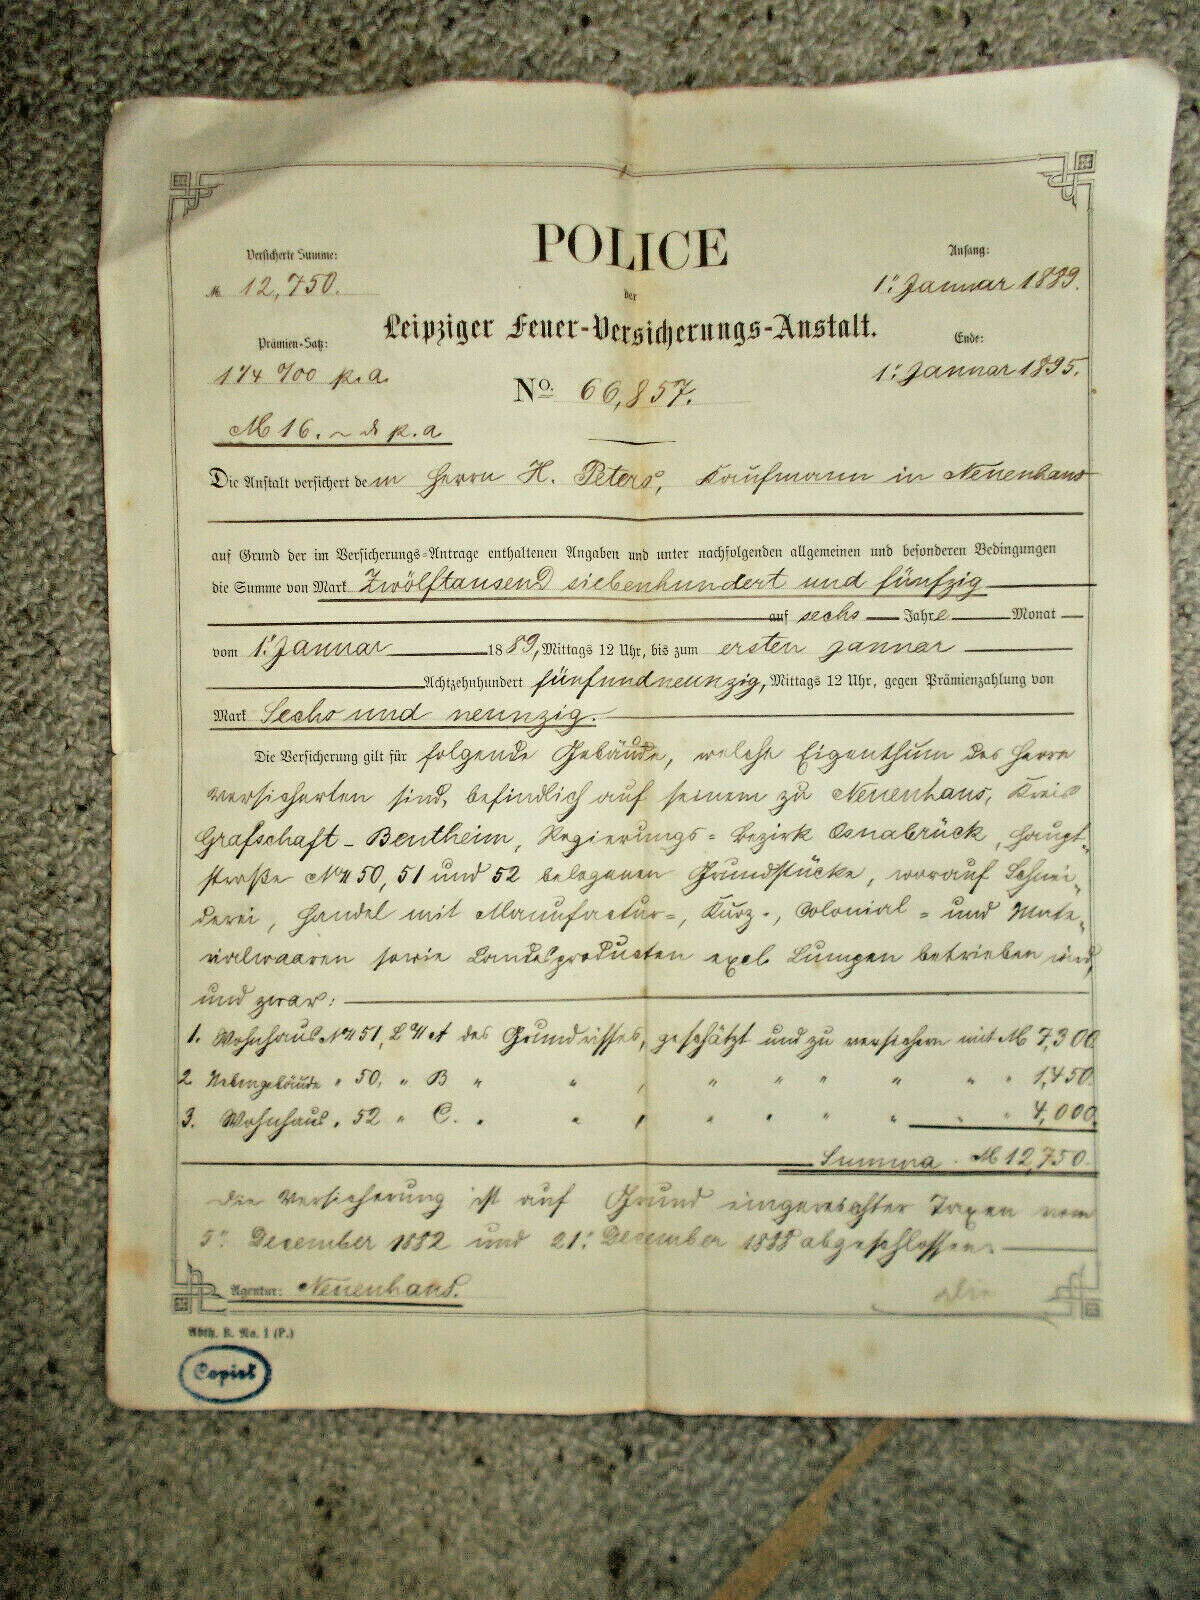 POLICE
der
Leipziger Feuer-Versicherungs-Anstalt.
No. 66,857.
Versicherte Summe:
M 12,750.
Prämien-Satz:
1 1/4 ‰ p. a.
M 16. ~ p. a
Anfang:
1. Januar 1889.
Ende:
1. Januar 1895.
Die Anstalt versichert dem Herrn H. Peters, Kaufmann in Neuenhaus
auf Grund der im Versicherungs-Antrage enthaltenen Angaben und unter nachfolgenden allgemeinen und besonderen Bedingungen
die Summe von Mark Zwölftausend siebenhundert und fünfzig
auf sechs Jahre Monat
vom 1. Januar 1889, Mittags 12 Uhr, bis zum ersten Januar
Achtzehnhundert fünfundneunzig, Mittags 12 Uhr, gegen Prämienzahlung von
Mark Sechs und neunzig.
Die Versicherung gilt für folgende Gebäude, welche Eigenthum des Herrn
Versicherten sind, befindlich auf seinem zu Neuenhaus, Kreis
Grafschaft-Bentheim, Regierungs-Bezirk Osnabrück, Haupt-
straße No 50, 51 und 52 belegenen Grundstücke, worauf Schnei-
derei, Handel mit Manufactur-, Kurz-, Colonial- und Mate-
rialwaaren sowie Landesproducten excl. Lumpen betrieben wird,
und zwar:
1. Wohnhaus No 51, Lit A des Grundrisses, geschätzt und zu versichern mit M 7,300.
2 Nebengebäude " 50, " B " " , " " " " " " 1,450.
3. Wohnhaus " 52 " C. " " , " " " " " " 4,000.
Summa M 12,750.
Die Versicherung ist auf Grund eingereichter Taxen vom
5. December 1882 und 21. December 1888 abgeschlossen.
Agentur: Neuenhaus.
Die
Abth. B. No. 1 (P.)
Copirt